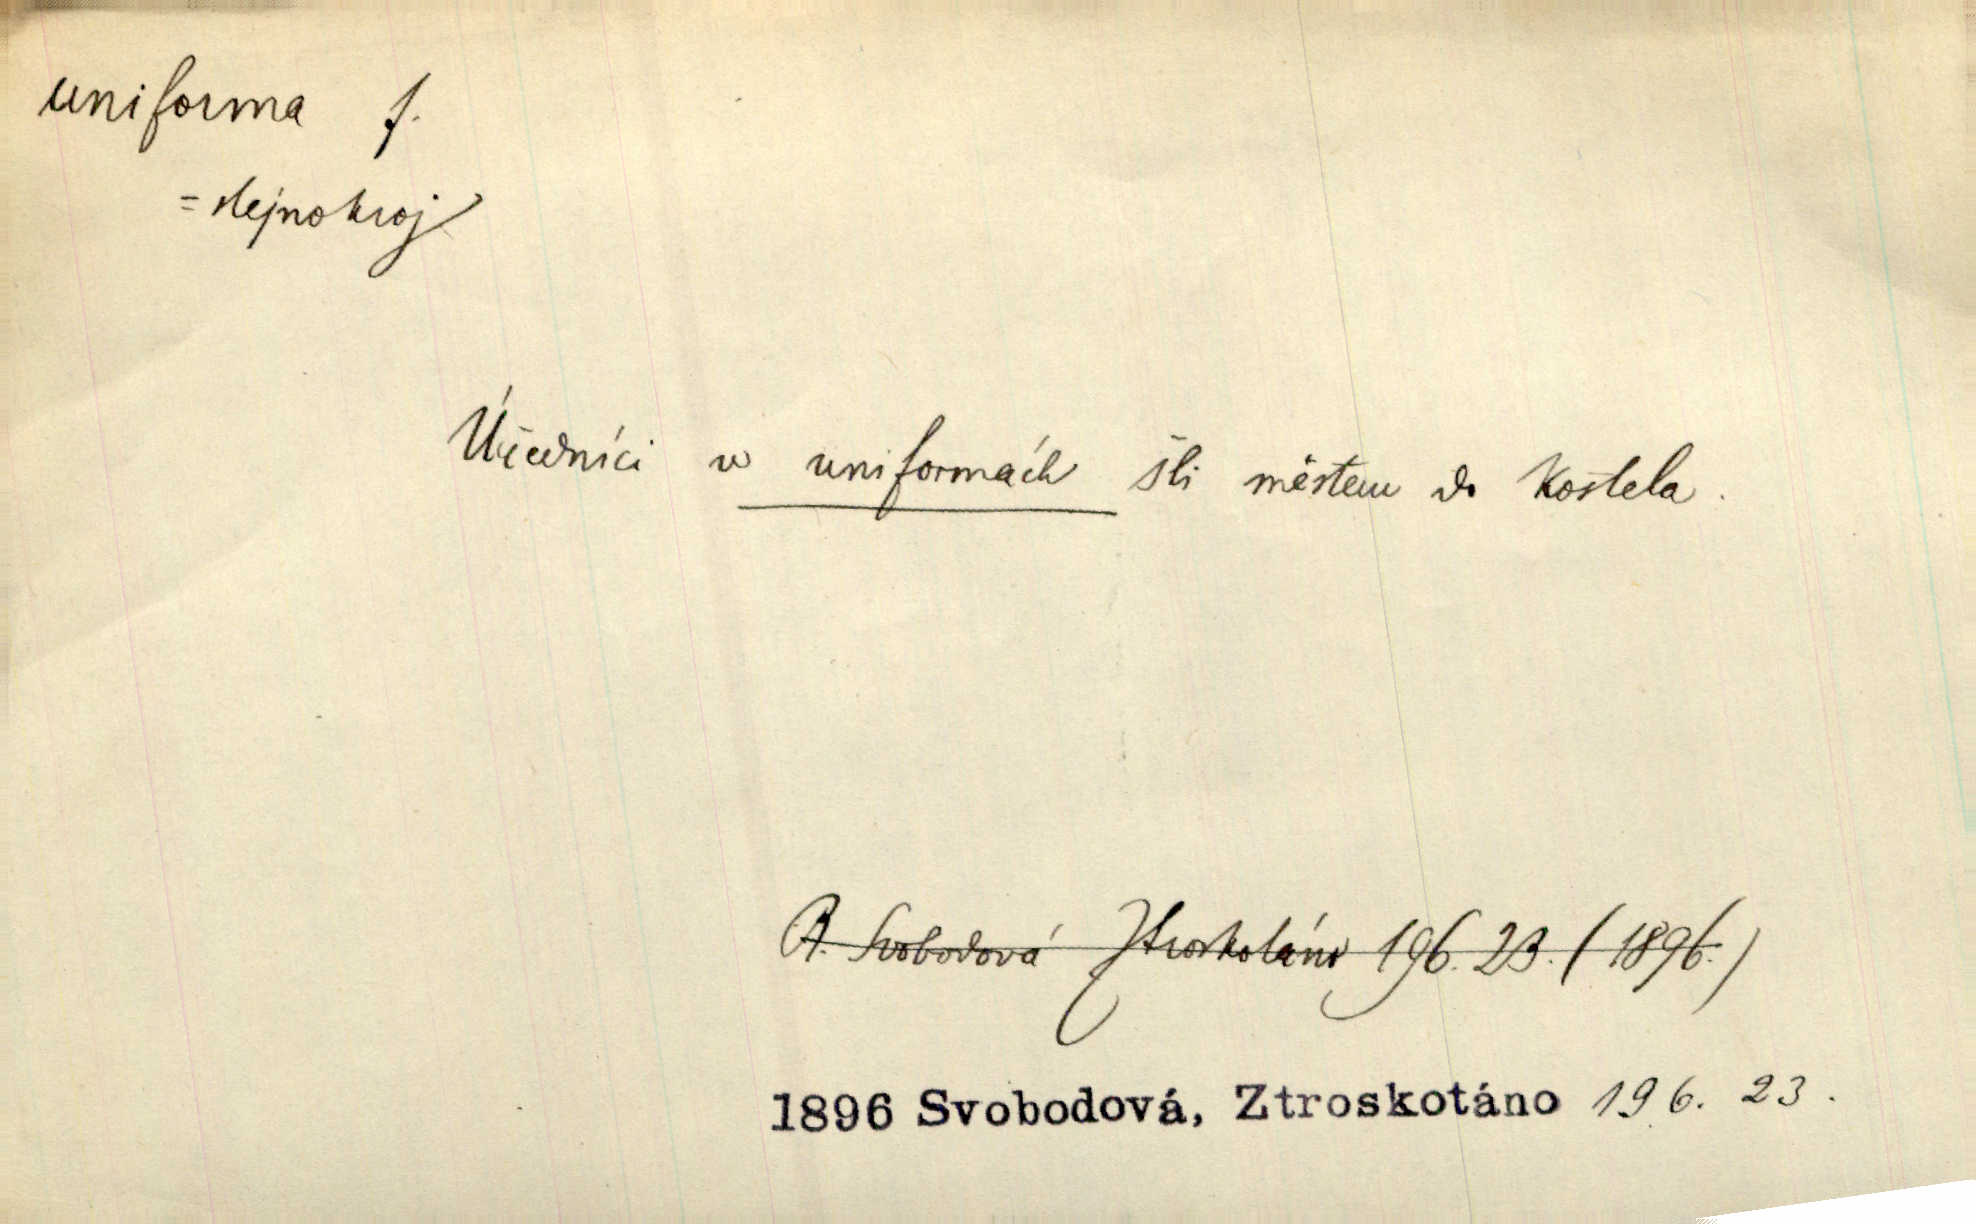 uniforma f.
= stejnokroj
Úředníci v uniformách šli městem do kostela.
R. Svobodová Ztroskotáno 196. 23. (1896.)
1896 Svobodová, Ztroskotáno 196. 23.